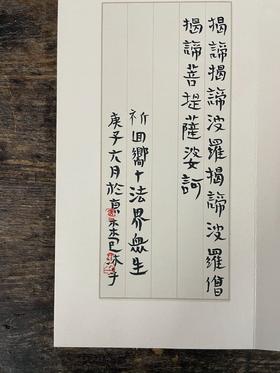 揭諦揭諦波羅揭諦波羅僧
揭諦菩提薩婆訶
祈回嚮十法界眾生
庚子六月於